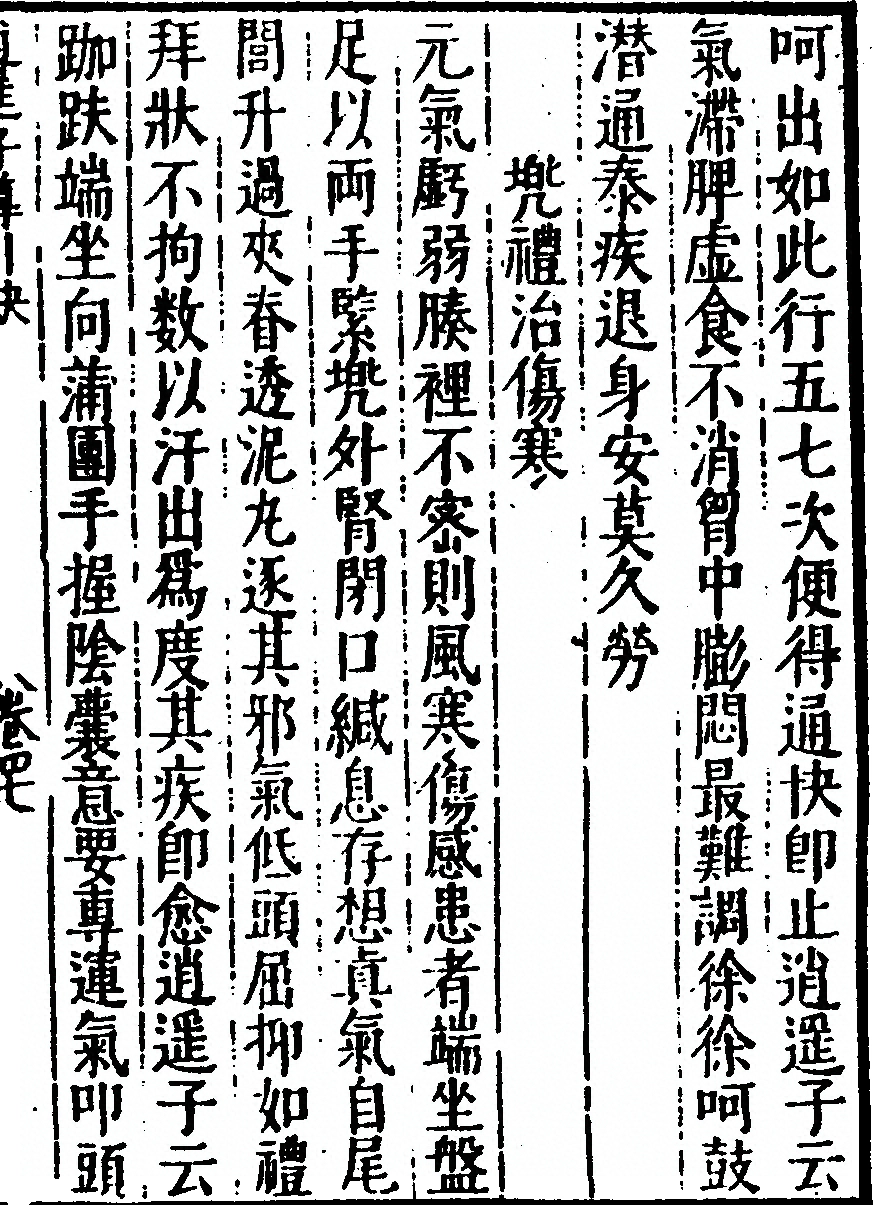 呵出如此行五七次便得通快即止逍遥子云
氣滯脾虛食不消胷中膨悶最難調徐徐呵鼓
潜通泰疾退身安莫久勞
兠禮治傷寒
元氣虧弱腠裡不密則風寒傷感患者端坐盤
足以兩手緊兠外腎閉口緘息存想真氣自尾
閭升過夾脊透泥丸逐其邪氣低頭屈抑如禮
拜狀不拘数以汗出為度其疾即愈逍遥子云
跏趺端坐向蒲團手握陰囊意要專運氣叩頭
卷四 七